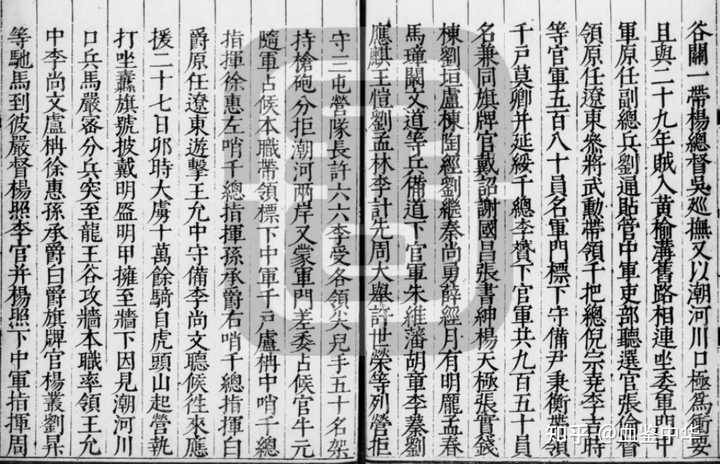 谷關一帶楊總督吳廵撫又以潮河川口極爲衝要
且與二十九年賊入黃榆溝舊路相連坐委軍門中
軍原任副總兵劉逼貼管中軍吏部聽選官張承督
領原任遼東叅將武勳帶領千把總倪宗堯李吉時
等官軍五百八十員名軍門標下守備尹秉衡帶領
千戶莫卿并延綏千總李贇下官軍共九百五十員
名兼同旗牌官戴詔謝國昌張書紳楊天極張實錢
棟劉垣盧棟陶經劉繼泰尚勇薛經月有明龐孟春
馬瑾闞文道等兵備道下官軍朱維藩胡童李蓁劉
應麒王愷劉孟林李計先周大舉許世榮等列營拒
守三屯營隊長許六六李受各領尖兒手五十名架
持槍砲分拒潮河兩岸又蒙軍門差委占候官牛元
隨軍占候本職帶領標下中軍千戶盧枏中哨千總
指揮徐惠左哨千總指揮孫承爵右哨千總指揮白
爵原任遼東遊擊王允中守備李尚文聽候徃來應
援二十七日卯時大虜十萬餘騎自虎頭山起營執
打坐纛旗號披戴明盔明甲擁至牆下因見潮河川
口兵馬嚴宻分兵突至龍王谷攻牆本職率領王允
中李尚文盧枏徐惠孫承爵白爵旗牌官楊叢劉昇
等馳馬到彼嚴督楊照李官并楊照下中軍指揮周
知乎 @血鉴中华